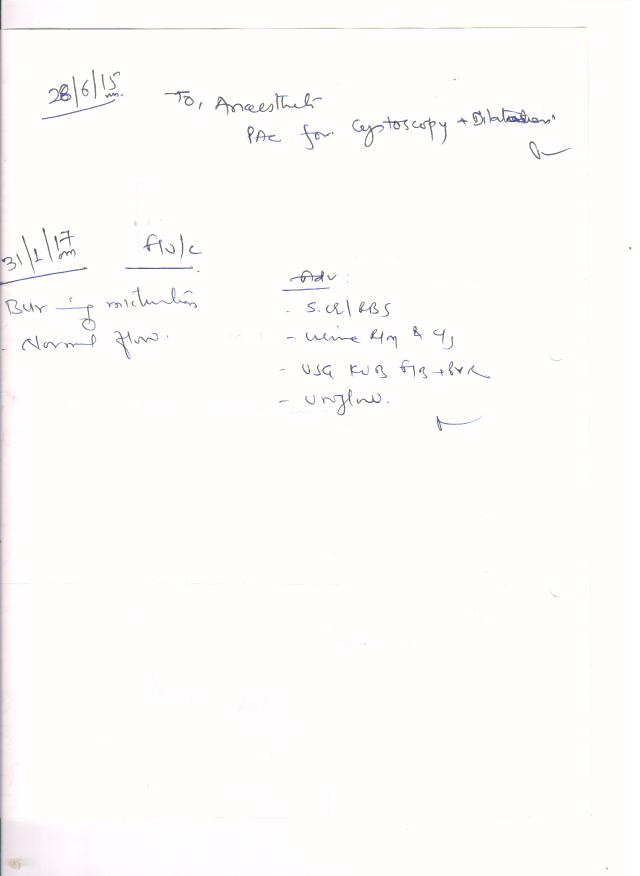 28/6/15
To, Anaestheti
PAC for Cystoscopy + Dilatation
31/1/17
F/U/C
Burning micturition
- Normal flow.
Adv :
- S. CR/RBS
- Urine R/M & C/S
- USG KUB F/B + PVR
- Uroflow.